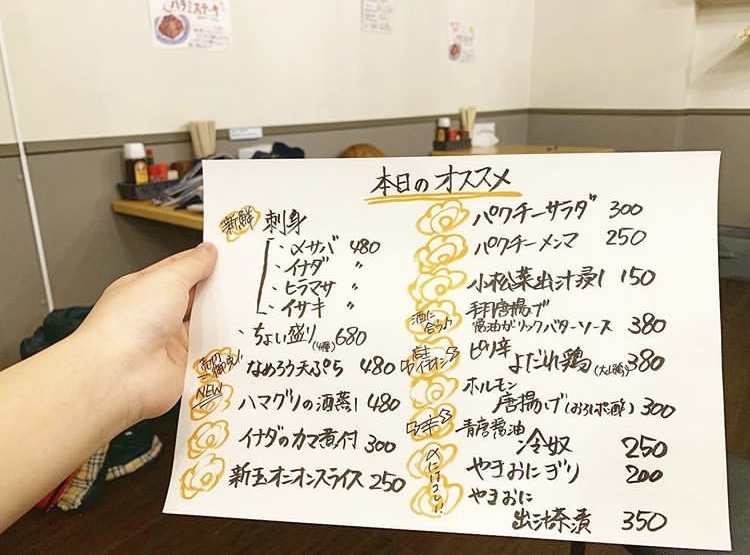 ハラミステーキ
本日のオススメ
新鮮 刺身
・〆サバ 480
・イナダ 〃
・ヒラマサ 〃
・イサキ 〃
・ちょい盛り(4種) 680
なめろう天ぷら 480
NEW ハマグリの酒蒸し 480
イナダのカマ煮付 300
新玉オニオンスライス 250
パクチーサラダ 300
パクチーメンマ 250
小松菜出汁浸し 150
酒に合う♪ 手羽唐揚げ
醤油ガーリックバターソース 380
ピリ辛
よだれ鶏(大山鶏) 380
ホルモン
唐揚げ(おろしポン酢) 300
ウキ 青唐醤油
冷奴 250
〆にはコレ!! やきおにぎり 200
やきおに
出汁茶漬 350